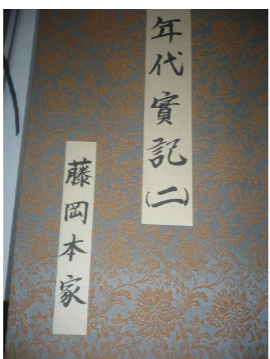 年代實記(二)
藤岡本家